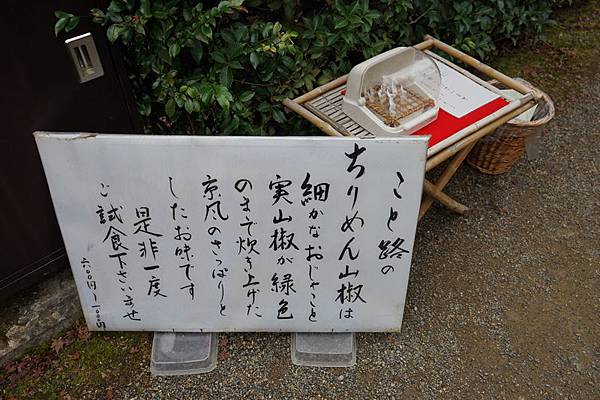 こと路の
ちりめん山椒は
細かなおじゃこと
実山椒が緑色
のまで炊き上げた
京風のさっぱりと
したお味です
是非一度
ご試食下さいませ
六〇〇円〜一〇〇〇円